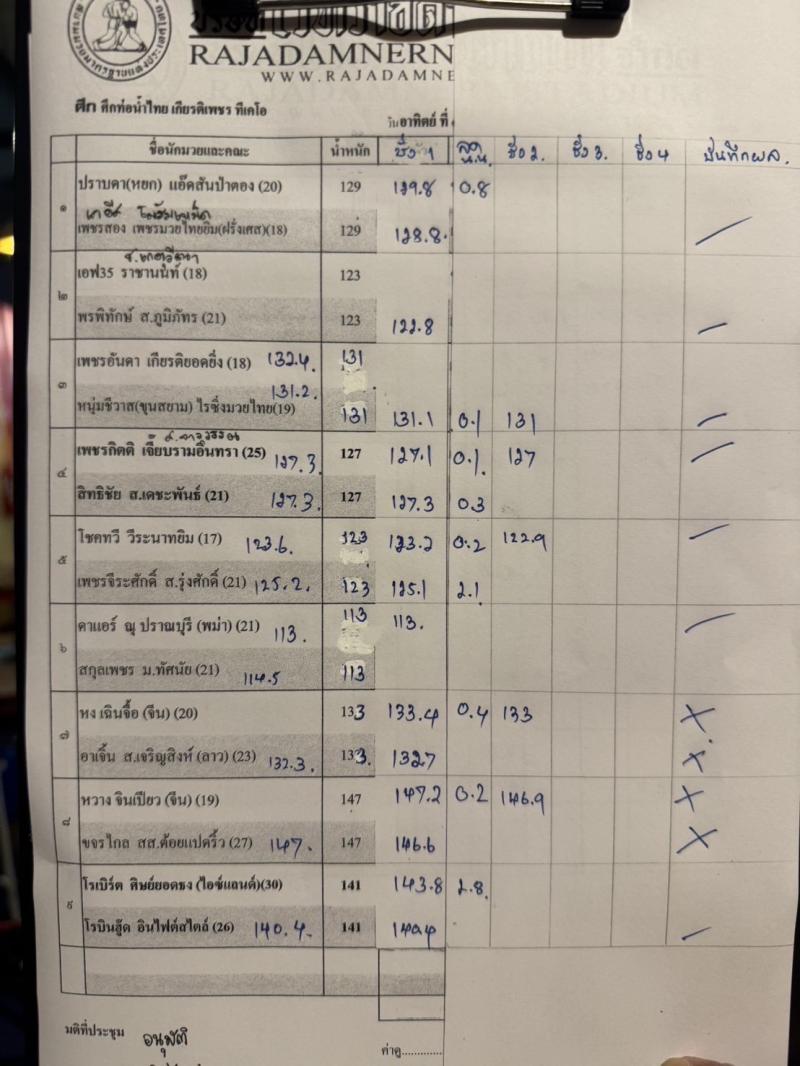 RAJADAMNERN
WWW.RAJADAMNE
ศึก ศึกท่อน้ำไทย เกียรติเพชร ทีเคโอ
วันอาทิตย์ ที่
ชื่อนักมวยและคณะ น้ำหนัก ชั่ง 1 ลด น.น. ชั่ง 2. ชั่ง 3. ชั่ง 4 บันทึกผล.
๑
ปราบดา(หยก) แอ๊ดสันป่าตอง (20) 129 129.8 0.8
เพชรสอง เพชรมวยไทยยิม(ฝรั่งเศส)(18) 129 128.8.
๒
เอฟ35 ราชานนท์ (18) 123
พรพิทักษ์ ส.ภูมิภัทร (21) 123 122.8
๓
เพชรอันดา เกียรติยอดยิ่ง (18) 132.4. 131
131.2.
หนุ่มชีวาส(ขุนสยาม) ไรซิ่งมวยไทย(19) 131 131.1 0.1 131
๔
เพชรกิตติ เจี๊ยบรามอินทรา (25) 127.3. 127 127.1 0.1. 127
สิทธิชัย ส.เดชะพันธ์ (21) 127.3. 127 127.3 0.3
๕
โชคทวี วีระนาทยิม (17) 123.6. 123 123.2 0.2 122.9
เพชรจีระศักดิ์ ส.รุ่งศักดิ์ (21) 125.2. 123 125.1 2.1
๖
คาแอร์ ณุ ปราณบุรี (พม่า) (21) 113. 113 113.
สกุลเพชร ม.ทัศนัย (21) 114.5 113
๗
หง เฉินจื้อ (จีน) (20) 133 133.4 0.4 133 X
อาเจิ้น ส.เจริญสิงห์ (ลาว) (23) 132.3. 133. 132.7 X
๘
หวาง จินเปียว (จีน) (19) 147 147.2 0.2 146.9 X
ขจรไกล สส.ต้อยแปดริ้ว (27) 147. 147 146.6 X
๙
โรเบิร์ต ศิษย์ยอดธง (ไอซ์แลนด์)(30) 141 143.8 2.8.
โรบินฮู๊ด อินไฟต์สไตล์ (26) 140.4. 141 140.4
มติที่ประชุม อนุมัติ
ค่าดู............